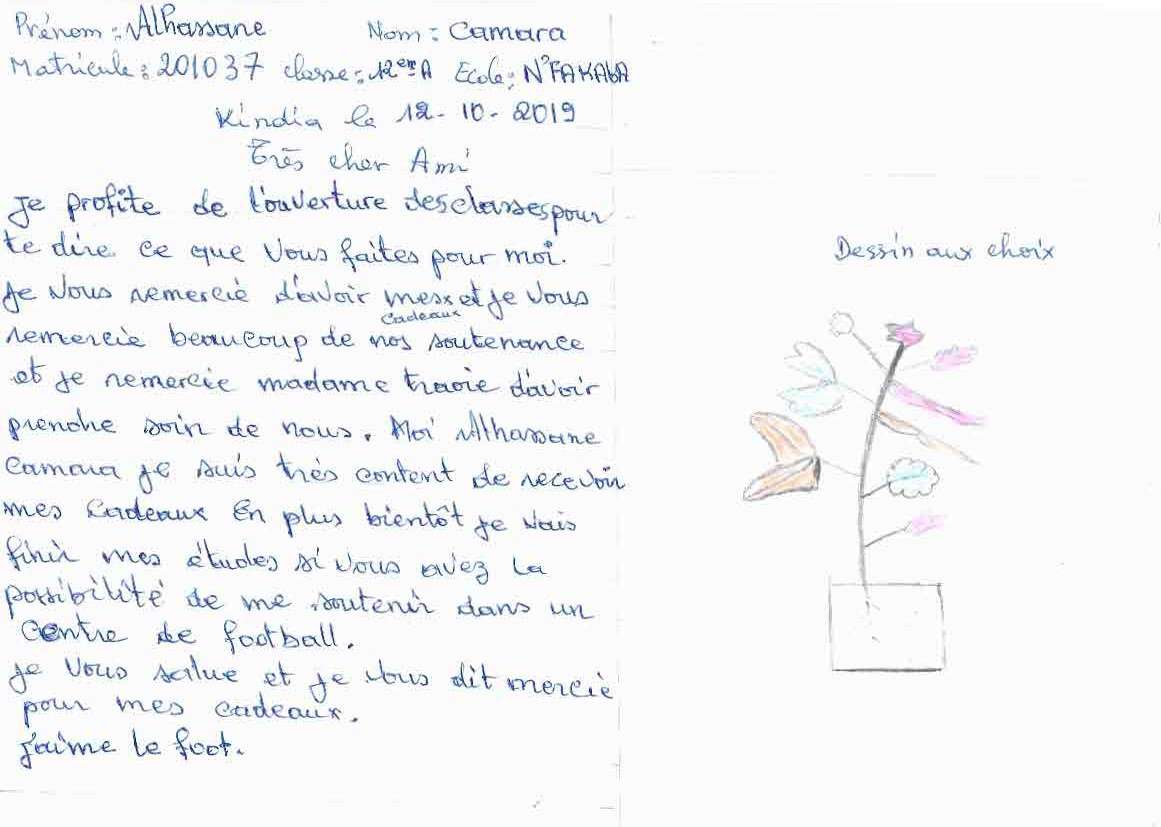 Prénom : Alhassane Nom : Camara
Matricule : 201037 classe : 12em A Ecole : N'FAKAbA
Kindia le 12-10-2019
Très cher Ami
Je profite de l'ouverture des classes pour
te dire ce que vous faites pour moi.
Je vous remercie d'avoir mess et je vous
cadeaux
remercie beaucoup de nos soutenance
et je remercie madame traoie d'avoir
prendre soin de nous. Moi Alhassane
Camara je suis très content de recevoir
mes cadeaux En plus bientôt je vais
finir mes études si vous avez la
possibilité de me soutenir dans un
Centre de football.
je vous salue et je vous dit mercie
pour mes cadeaux.
j'aime le foot.
Dessin aux choix